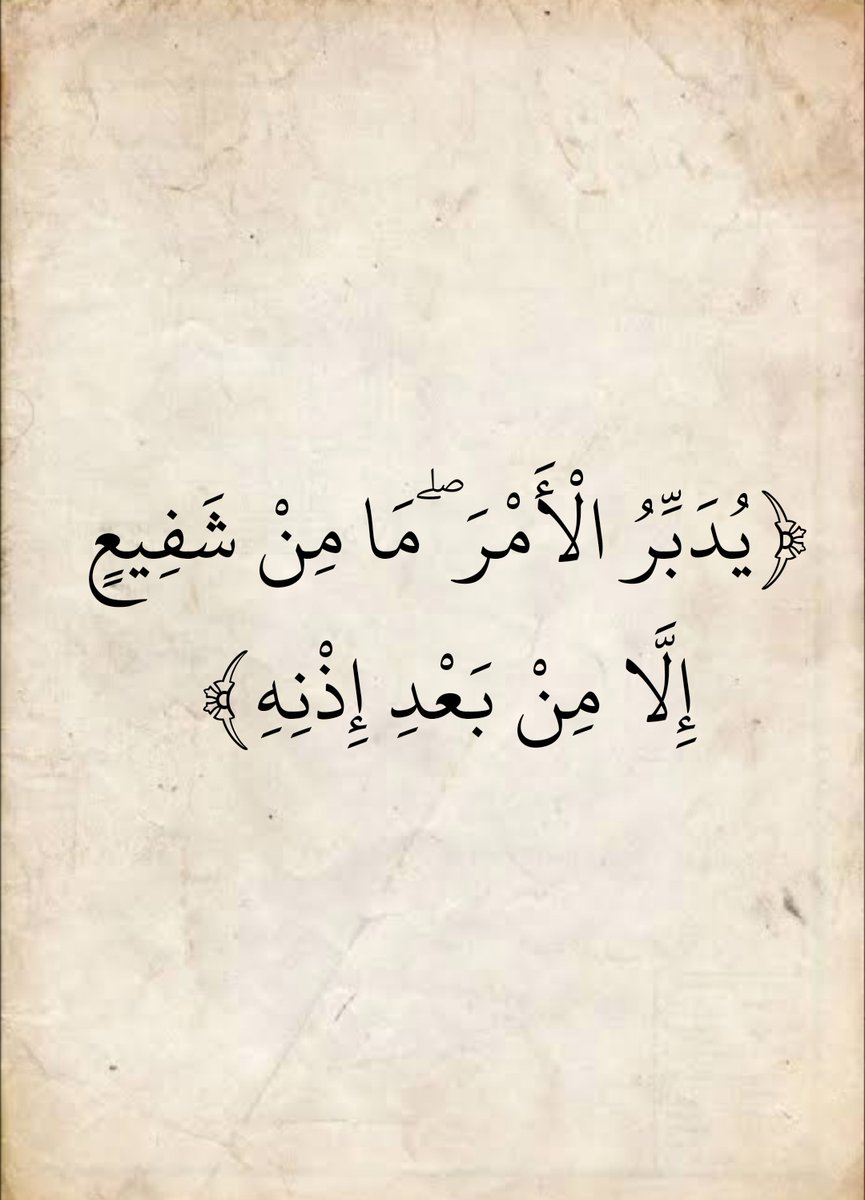 ﴿يُدَبِّرُ الْأَمْرَ ۖ مَا مِنْ شَفِيعٍ
إِلَّا مِنْ بَعْدِ إِذْنِهِ﴾